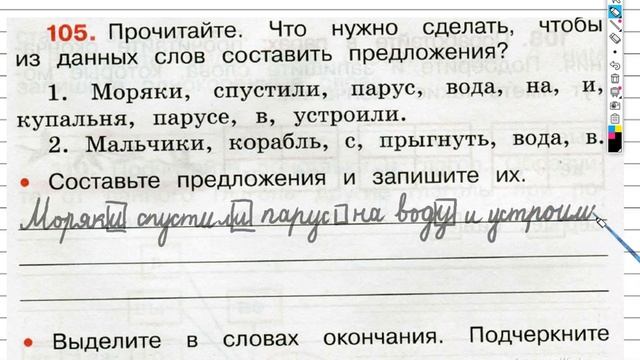 105. Прочитайте. Что нужно сделать, чтобы
из данных слов составить предложения?
1. Моряки, спустили, парус, вода, на, и,
купальня, парусе, в, устроили.
2. Мальчики, корабль, с, прыгнуть, вода, в.
• Составьте предложения и запишите их.
Моряки спустили парус на воду и устроили
• Выделите в словах окончания. Подчеркните